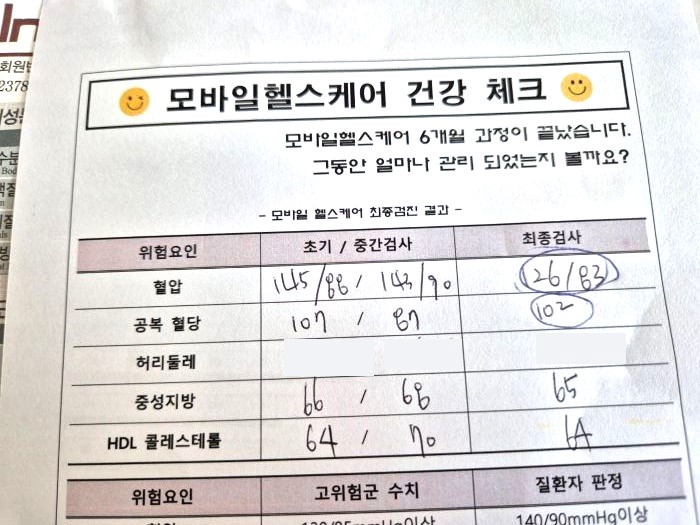 In
회원번
2378
모바일헬스케어 건강 체크
모바일헬스케어 6개월 과정이 끝났습니다.
그동안 얼마나 관리 되었는지 볼까요?
- 모바일 헬스케어 최종검진 결과 -
위험요인 초기 / 중간검사 최종검사
혈압 145/88 / 143/90 126/83
공복 혈당 107 / 87 102
허리둘레
중성지방 66 / 68 65
HDL 콜레스테롤 64 / 70 64
위험요인 고위험군 수치 질환자 판정
140/90mmHg이상